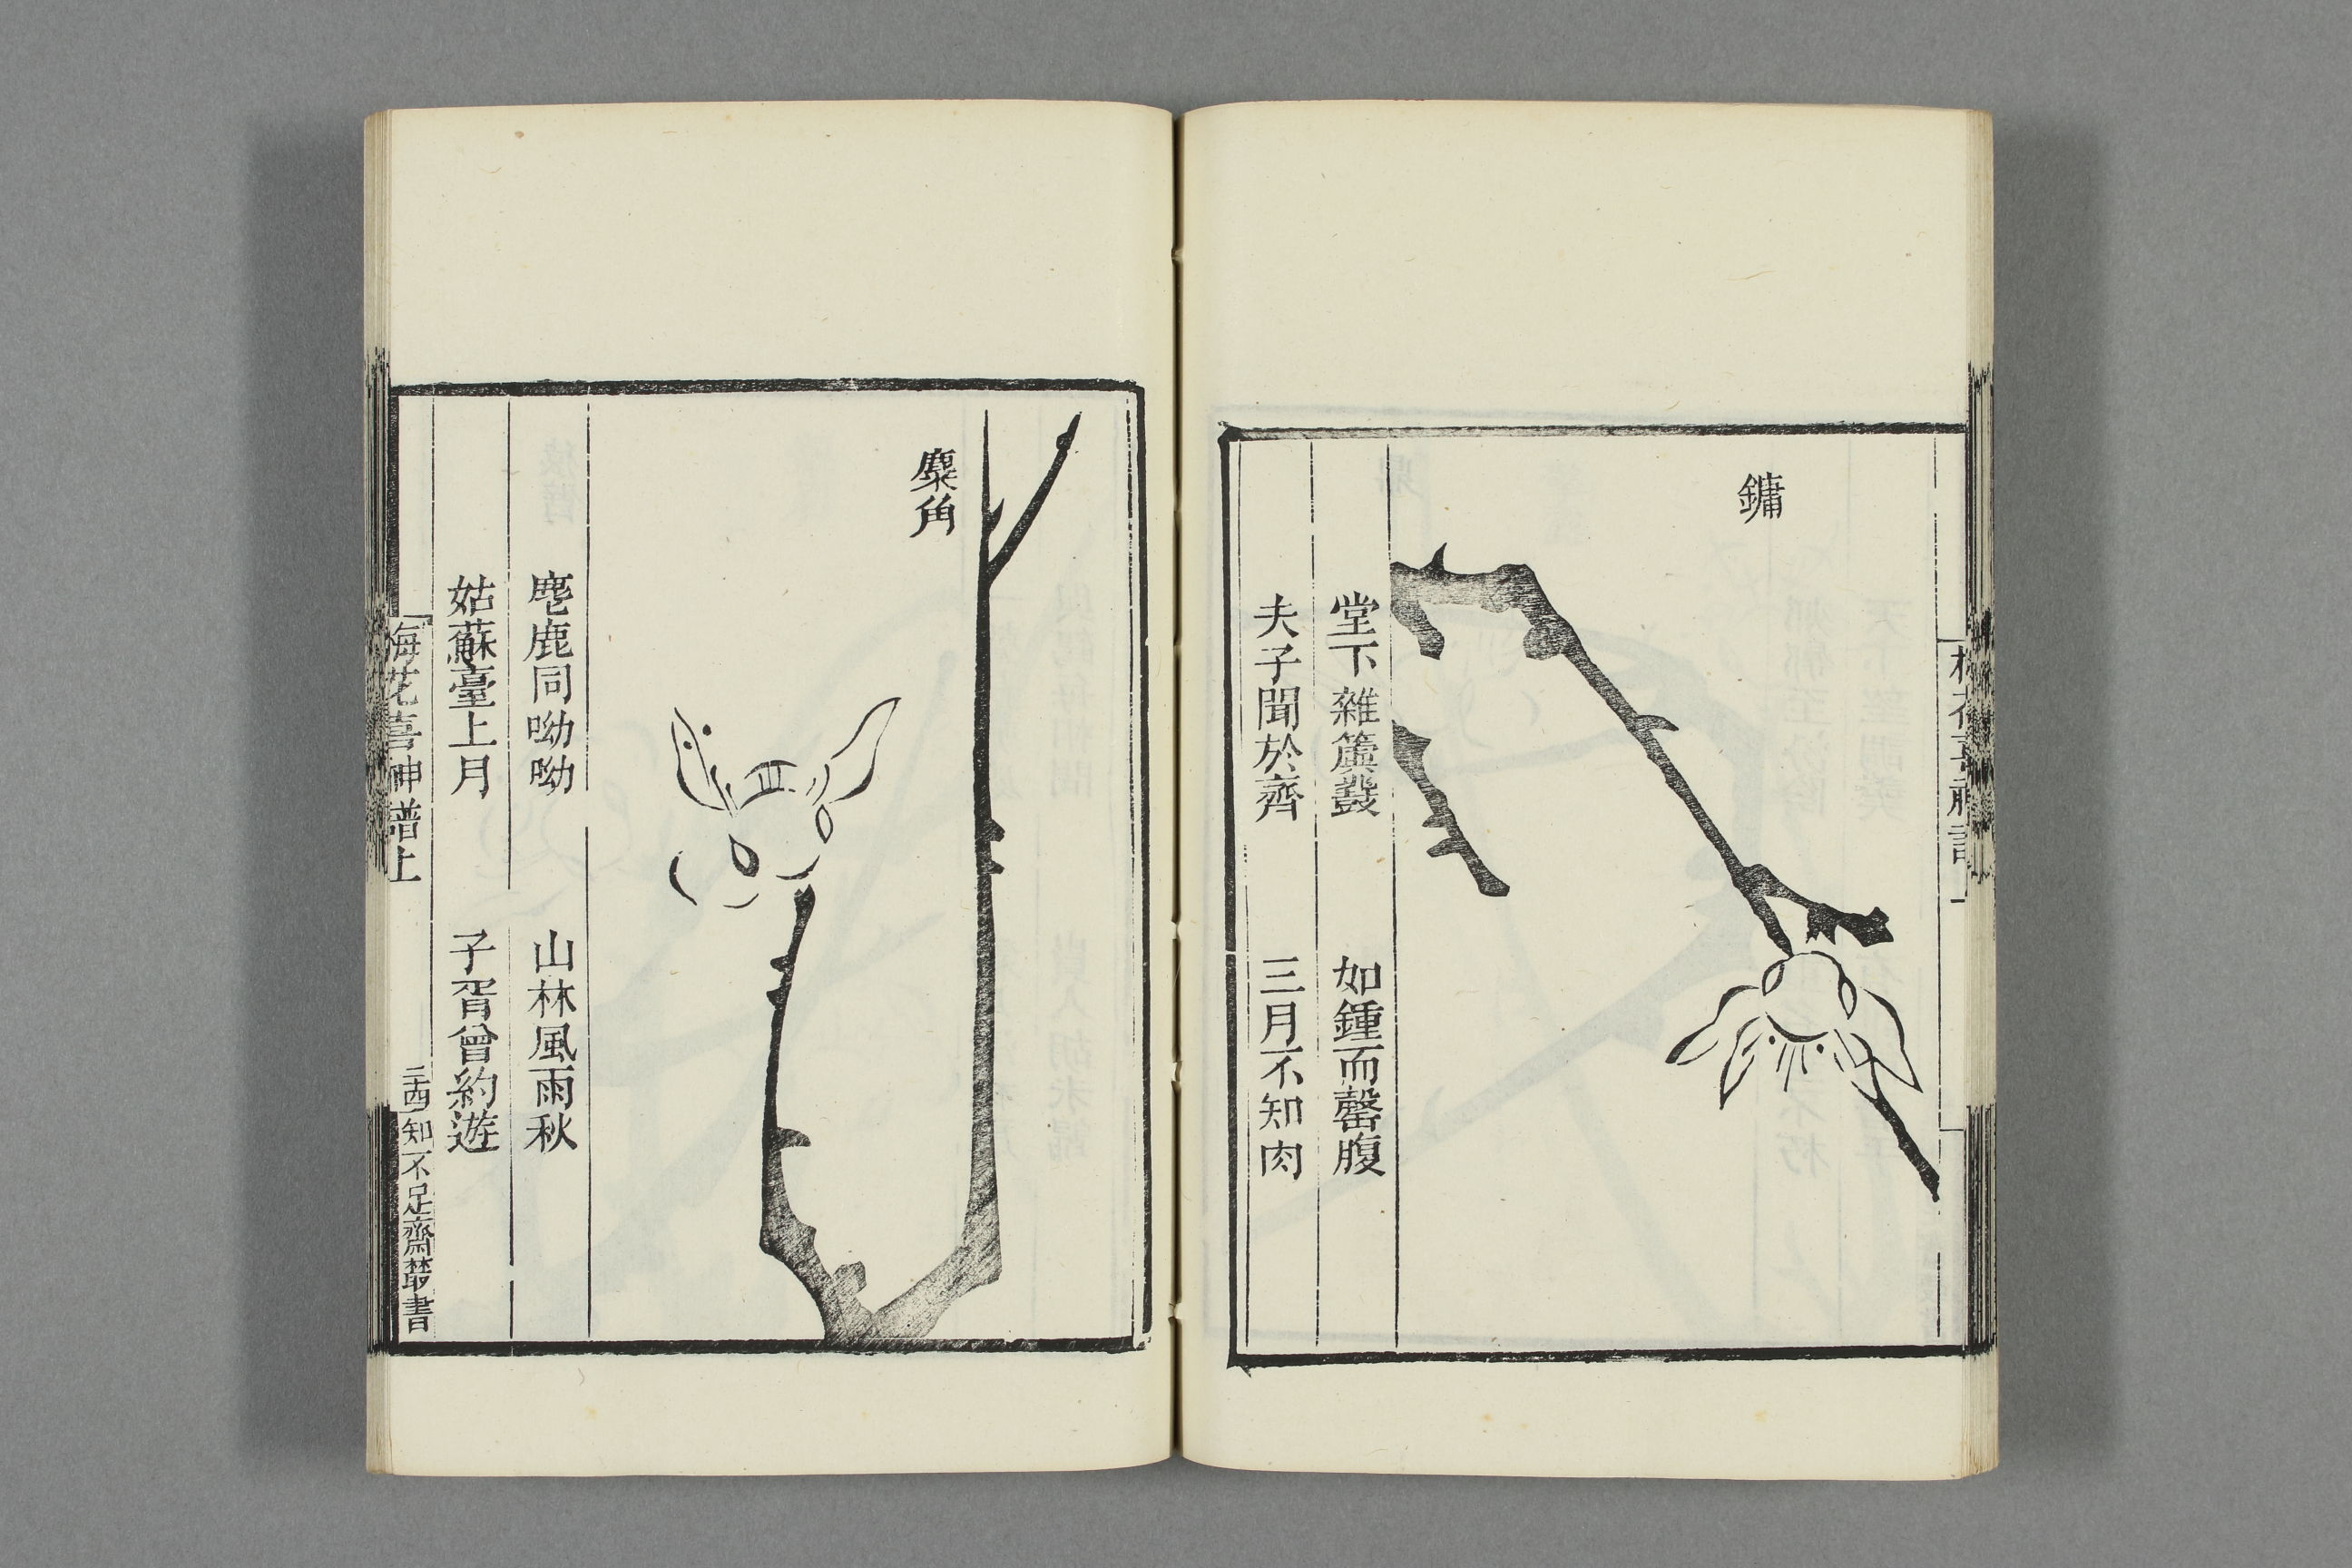 鏞
堂下雜簴鼗　如鍾而罄腹
夫子聞於齊　三月不知肉
麋角
麀鹿同呦呦　山林風雨秋
姑蘇臺上月　子胥曾約遊
梅花喜神譜上
知不足齋叢書